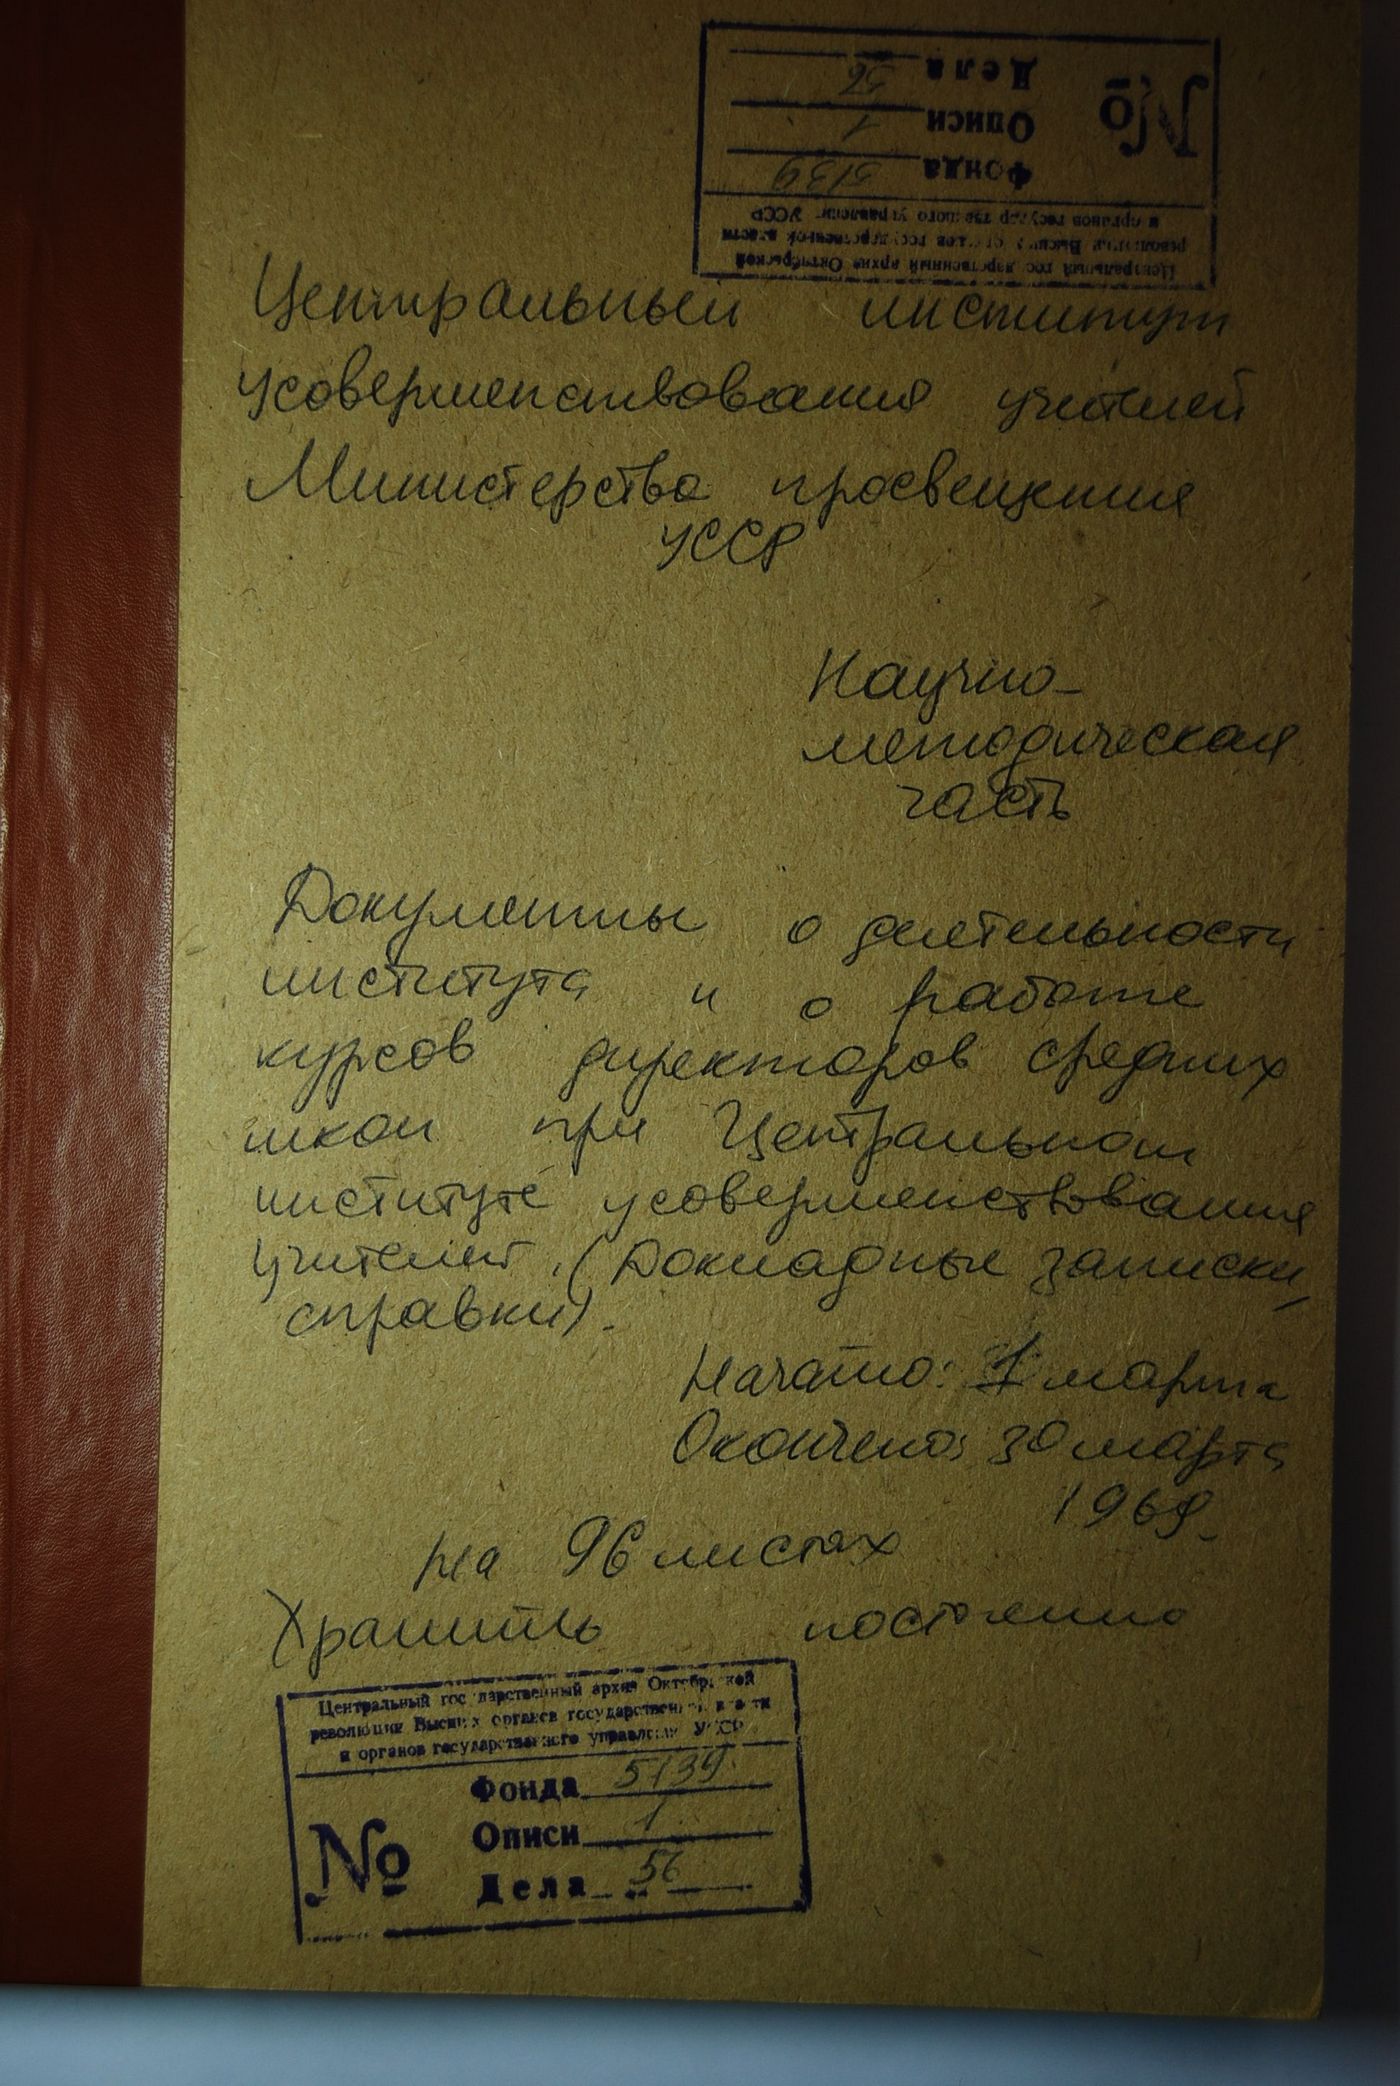 Центральный государственный архив Октябрьской
революции Высших органов государственной власти
и органов государственного управления УССР
Фонда 5139
Описи 1
№
Дела 56
Центральный институт
усовершенствования учителей
Министерства просвещения
УССР
Научно-
методическая
часть
Документы о деятельности
института и о работе
курсов директоров средних
школ при Центральном
институте усовершенствования
учителей. (Докладные записки,
справки).
Начато: 1 марта
Окончено: 30 марта
на 96 листах
Хранить постоянно
Центральный государственный архив Октябрьской
революции Высших органов государственной власти
и органов государственного управления УССР
Фонда 5139
Описи 1
№
Дела 56